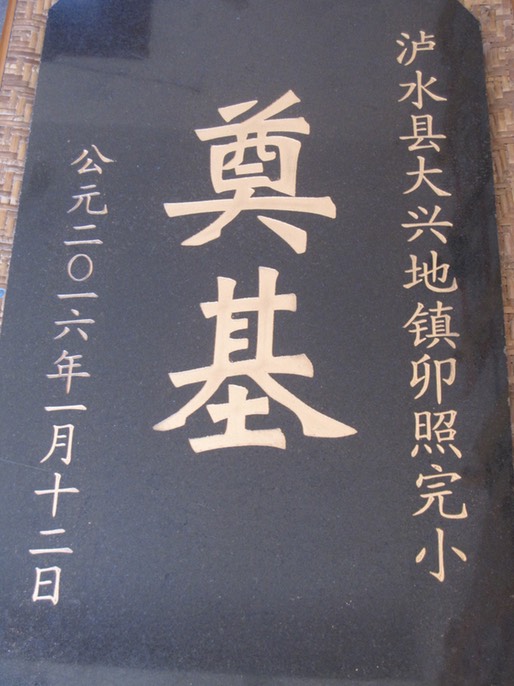 泸水县大兴地镇卯照完小
奠基
公元二〇一六年一月十二日